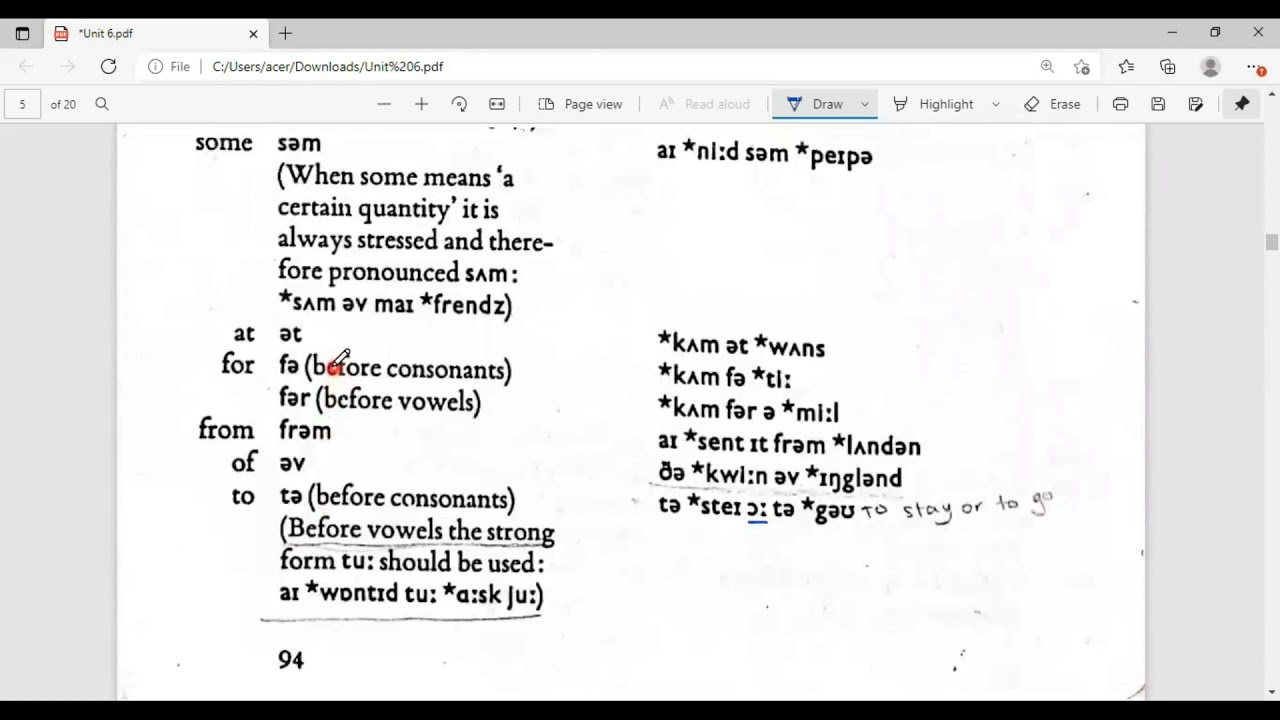 *Unit 6.pdf
File C:/Users/acer/Downloads/Unit%206.pdf
5 of 20 Page view Read aloud Draw Highlight Erase
some səm aɪ *niːd səm *peɪpə
(When some means ‘a
certain quantity’ it is
always stressed and there-
fore pronounced sʌm:
*sʌm əv maɪ *frendz)
at ət *kʌm ət *wʌns
for fə (before consonants) *kʌm fə *tiː
fər (before vowels) *kʌm fər ə *miːl
from frəm aɪ *sent ɪt frəm *lʌndən
of əv ðə *kwiːn əv *ɪŋglənd
to tə (before consonants) tə *steɪ ɔː tə *gəʊ To stay or to go
(Before vowels the strong
form tuː should be used:
aɪ *wɒntɪd tuː *ɑːsk juː)
94